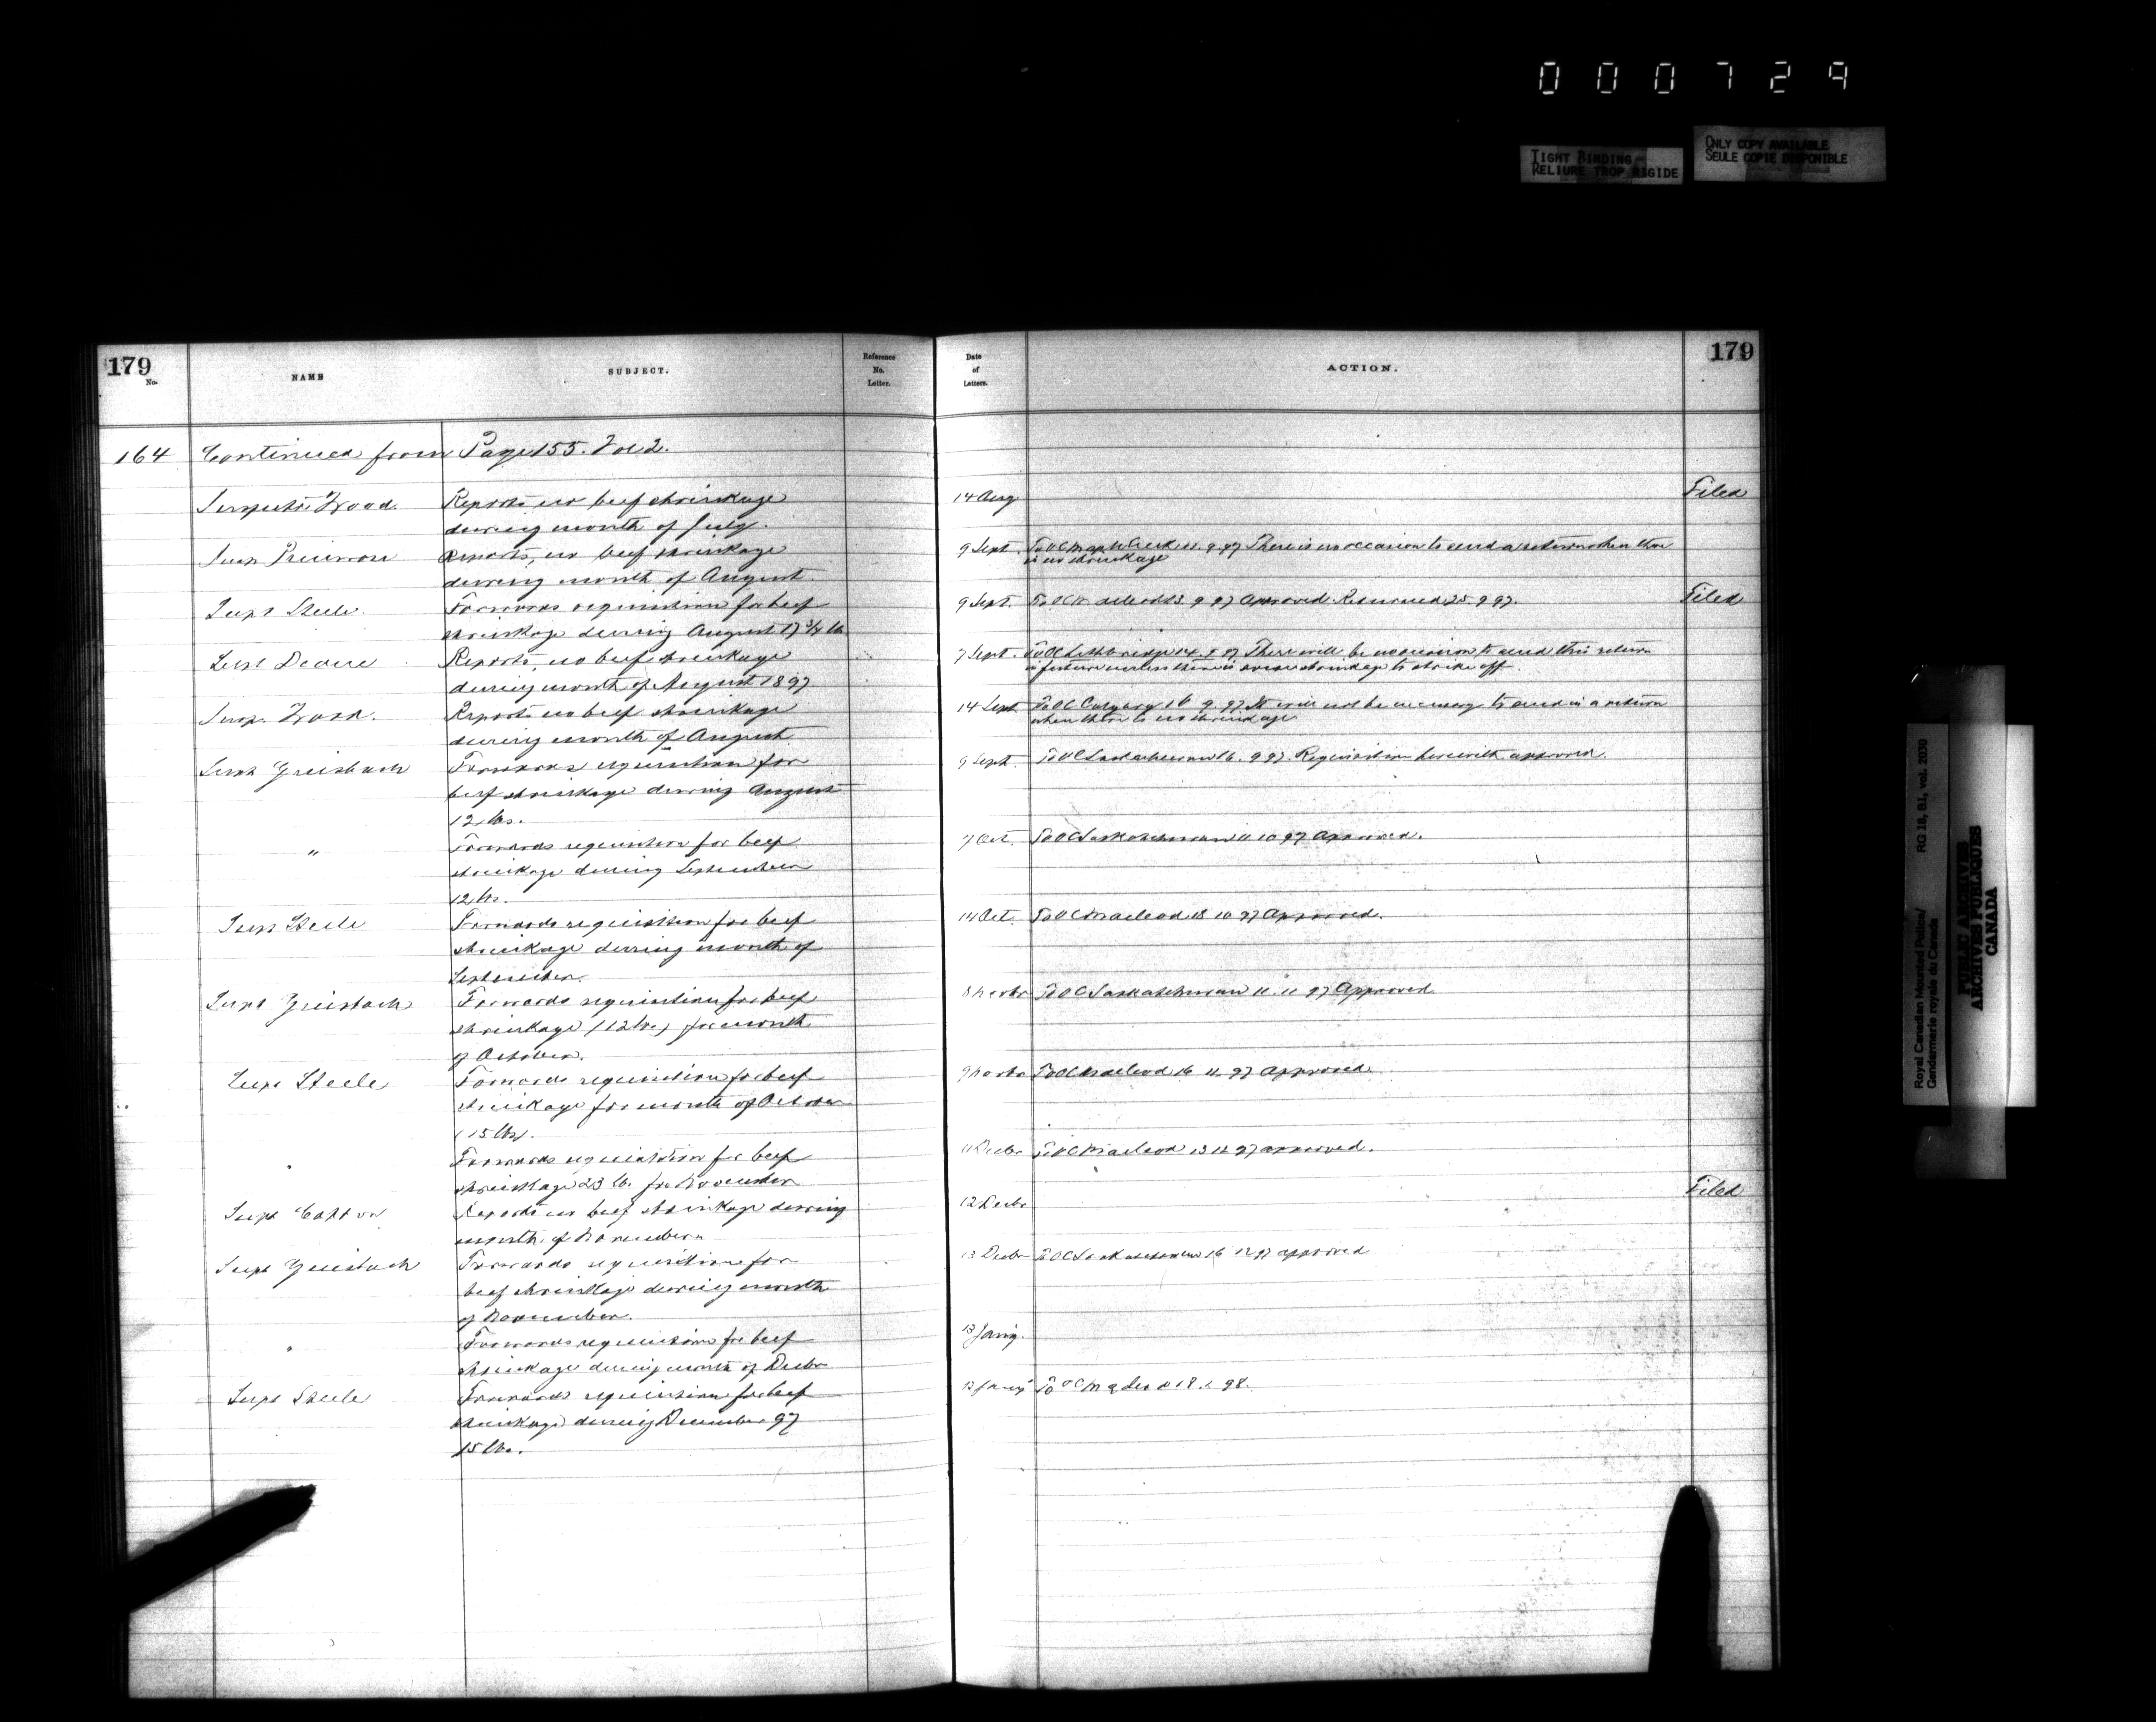 000729
TIGHT BINDING
RELIURE TROP RIGIDE
ONLY COPY AVAILABLE
SEULE COPIE DISPONIBLE
179
No.
NAME
SUBJECT.
Reference
No.
Letter.
Date
of
Letters.
ACTION.
179
164 Continued from Page 155. Vol 2.
Wood. Reports no beef shrinkage 14 Aug Filed
during month of July.
Primrose Reports, no beef shrinkage 9 Sept. To OC Maple Creek 9.97 There is no occasion to send a return when there
is no shrinkage
during month of August
Supt Steele Forwards requisition for beef 9 Sept. To OC Macleod 9 97 Approved. Returned 25.9.97. Filed
shrinkage during August 17 3/4 lb
Supt Deane Reports, no beef shrinkage 7 Sept. To OC Lethbridge 14. 97 There will be no occasion to send this return
in future unless there is some shrinkage to strike off.
during month of August 1897
Insp. Wood. Reports no beef shrinkage 14 Sept To OC Calgary 16 9.97 It will not be necessary to send in a return
when there is no shrinkage
during month of August.
Supt Griesbach Forwards requisition for 9 Sept. To OC Saskatchewan 16. 9 97. Requisition herewith approved.
beef shrinkage during August
12 lbs.
" Forwards requisition for beef 7 Oct. To OC Saskatchewan 11 10 97 Approved.
shrinkage during September
12 lbs.
Supt Steele Forwards requisition for beef 14 Oct. To OC Macleod 18 10 97 Approved.
shrinkage during month of
September.
Supt Griesbach Forwards requisition for beef 8 Novbr To OC Saskatchewan 11. 11 97 Approved.
shrinkage (12 lbs) for month
of October.
Supt Steele Forwards requisition for beef 9 Novbr To OC Macleod 16 11 97 Approved.
shrinkage for month of October
(15 lbs).
" Forwards requisition for beef 11 Decbr To OC Macleod 12 97 approved.
shrinkage 23 lbs. for November
Supt Cotton Reports no beef shrinkage during 12 Decbr Filed
month of November
Supt Griesbach Forwards requisition for 13 Decbr To OC Saskatchewan 16 12 97 approved
beef shrinkage during month
of November.
" Forwards requisition for beef 13 Jany.
shrinkage during month of Decbr
Supt Steele Forwards requisition for beef 12 Jany To OC Macleod 18.1.98.
shrinkage during December 97
15 lbs.
Royal Canadian Mounted Police/ RG 18, B1, vol. 2030
Gendarmerie royale du Canada
PUBLIC ARCHIVES
ARCHIVES PUBLIQUES
CANADA